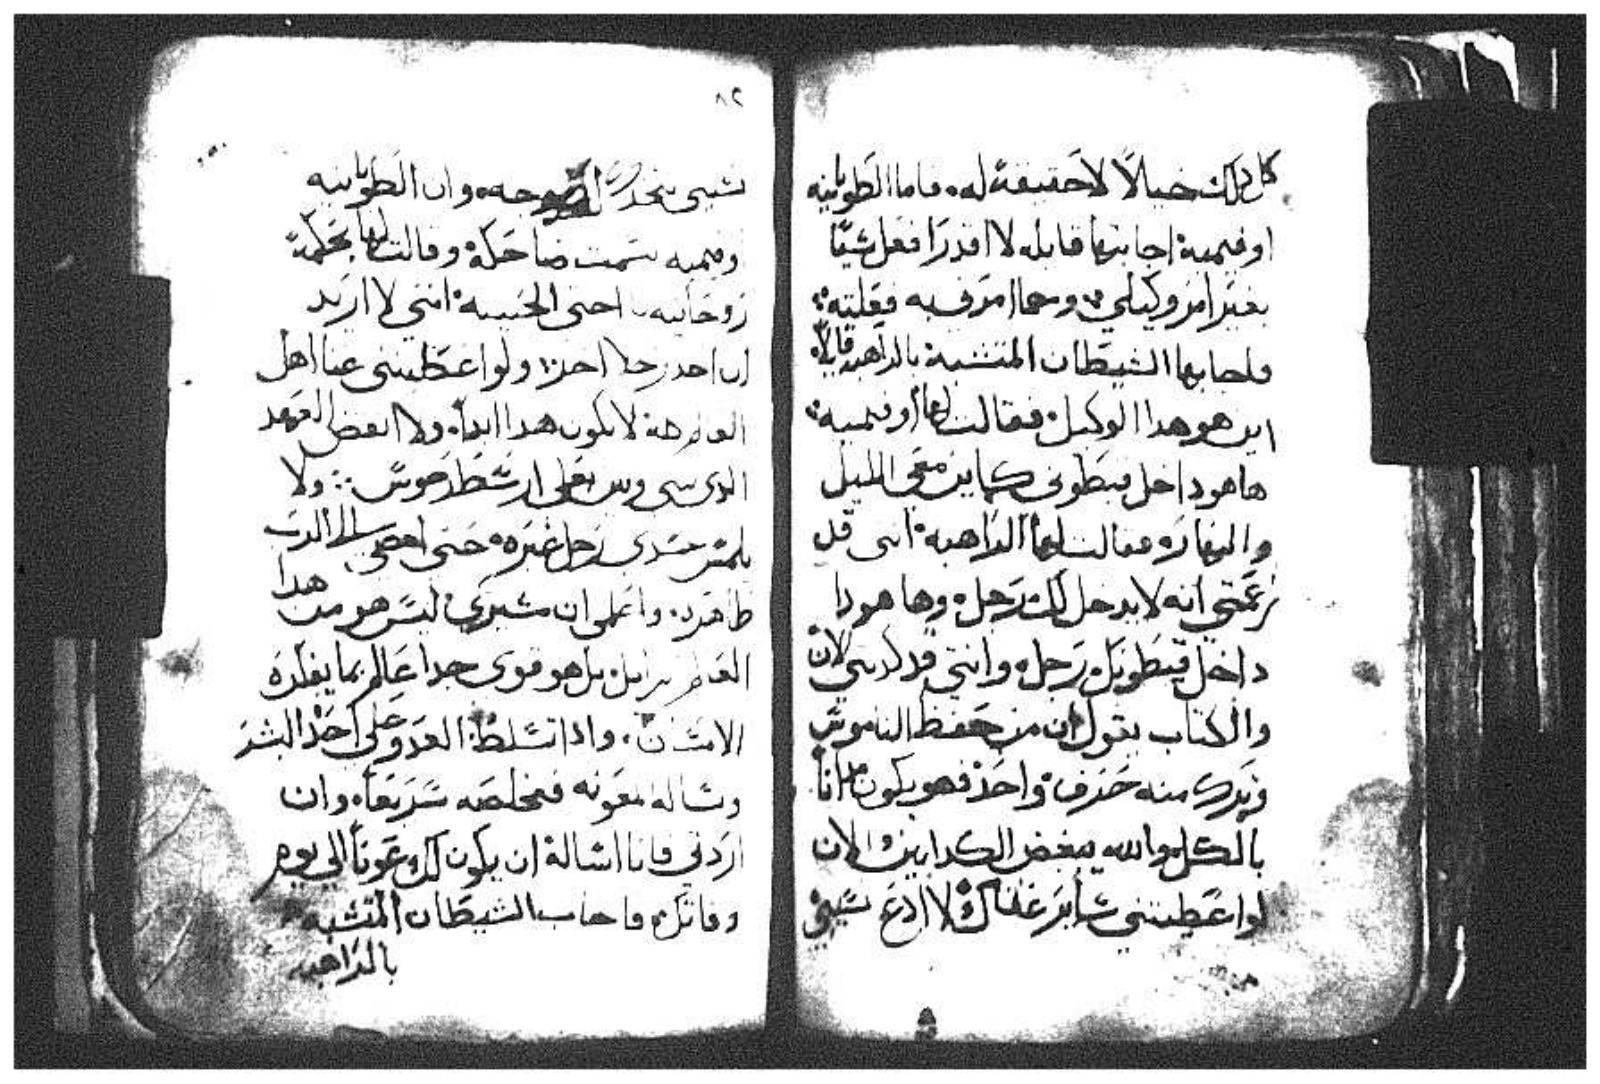 كل دلك خيالاً لا حقيقة له. فاما الطوبانيه
اوفميه اجابتها قايله لا اقدر افعل شيًا
بغير امر وكيلي وهما امرني به فعلته
فاجابها الشيطان المتشبه بالراهبه قايلاً
اين هو هدا الوكيل فقالت لها اوفميه
ها هو داخل قيطوني كاين معي الليل
والنهار فقالت لها الراهبه انتي قد
زعمتي انه لا يدخل لك رجل وها هودا
داخل قيطونك رجل وانتي قد كدبتي لان
والكتاب يقول ان من حفظ الناموس
وترك منه حرف واحد فهو يكون مدانا
بالكل والله يبغض الكدابين والان
لو اعطيتني لا ادع سيبي
٨٢
شيبي وان الطوبانيه
اوفميه تبسمت ضاحكة وقالت لها بحكمة
روحانيه يا اختي الحبيبه انني لا اريد
ان اخد رجلا اخر ولو اعطيتني غنا اهل
العالم لا يكون هدا ابدا ولا انقض العهد
الدي بيني وبين بعلي ارسطرخوس ولا
يلمس جسدي رجل غيره حتى امضي الى الرب
طاهره واعلمي ان مشيري ليس هو من هدا
العالم بل هو قوي جدا عالم بما يفعله
الانسان واذا تسلط العدو على احد البشر
وساله معونه فيخلصه سريعاً وان
اردتي فانا اساله ان يكون لك عوناً الي يوم
وفاتك فاجاب الشيطان المتشبه
بالراهبه